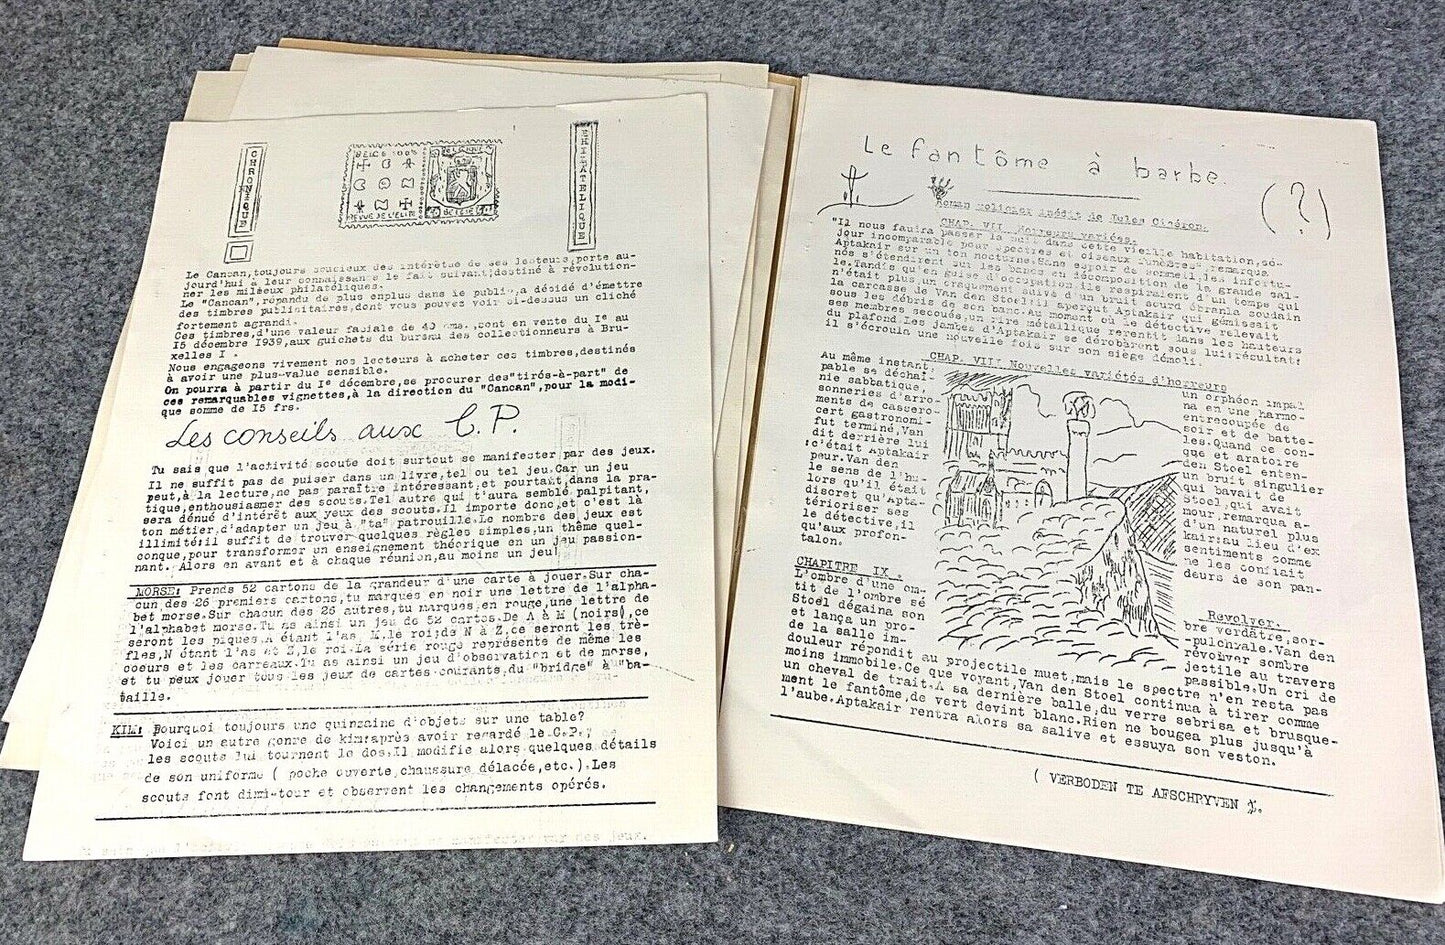 CHRONIQUE
PHILATELIQUE
BELGE 100%
BELGIQUE
REVUE DE L'ELITE
BELGIE
Le Cancan,toujours soucieux des intérêts de ses lecteurs,porte au-
jourd'hui à leur connaissance le fait suivant,destiné à révolution-
ner les milieux philatéliques.
Le "Cancan",répandu de plus en plus dans le public,a décidé d'émettre
des timbres publicitaires,dont vous pouvez voir ci-dessus un cliché
fortement agrandi.
Ces timbres,d'une valeur faciale de 40 cms.,sont en vente du Iᵉ au
I5 décembre 1939,aux guichets du bureau des collectionneurs à Bru-
xelles I .
Nous engageons vivement nos lecteurs à acheter ces timbres,destinés
à avoir une plus-value sensible.
On pourra à partir du Iᵉ décembre,se procurer des"tirés-à-part" de
ces remarquables vignettes,à la direction du "Cancan",pour la modi-
que somme de I5 frs.
Les conseils aux C.P.
Tu sais que l'activité scoute doit surtout se manifester par des jeux.
Il ne suffit pas de puiser dans un livre,tel ou tel jeu.Car un jeu
peut,à la lecture,ne pas paraître intéressant,et pourtant,dans la pra-
tique,enthousiasmer des scouts.Tel autre qui t'aura semblé palpitant,
sera dénué d'intérêt aux yeux des scouts.Il importe donc,et c'est là
ton métier,d'adapter un jeu à "ta" patrouille.Le nombre des jeux est
illimité:il suffit de trouver quelques règles simples,un thème quel-
conque,pour transformer un enseignement théorique en un jeu passion-
nant. Alors en avant et à chaque réunion,au moins un jeu!
MORSE: Prends 52 cartons de la grandeur d'une carte à jouer.Sur cha-
cun des 26 premiers cartons,tu marques en noir une lettre de l'alpha-
bet morse.Sur chacun des 26 autres,tu marques en rouge,une lettre de
l'alphabet morse.Tu as ainsi un jeu de 52 cartes.De A à M (noirs),ce
seront les piques.A étant l'as M,le roi;de N à Z,ce seront les trè-
fles,N étant l'as et Z,le roi.La série rouge représente de même les
coeurs et les carreaux.Tu as ainsi un jeu d'observation et de morse,
et tu peux jouer tous les jeux de cartes courants,du "bridge" à "ba-
taille.
KIM: Pourquoi toujours une quinzaine d'objets sur une table?
Voici un autre genre de kim:après avoir regardé le C.P.,
les scouts lui tournent le dos.Il modifie alors quelques détails
de son uniforme ( poche ouverte,chaussure délacée,etc.).Les
scouts font dimi-tour et observent les changements opérés.
Le fantôme à barbe
(?)
Roman policier inédit de Jules Cicéron.
CHAP. VII Horreurs variées.
"Il nous faudra passer la nuit dans cette vieille habitation,sé-
jour incomparable pour spectres et oiseaux funèbres",remarqua
Aptakair sur un ton nocturne.Sans espoir de sommeil,les infortu-
nés s'étendirent sur les bancs en décomposition de la grande sal-
le.Tandis qu'en guise d'occupation,ils respiraient d'un temps qui
n'était plus,un craquement suivi d'un bruit sourd ébranla soudain
la carcasse de Van den Stoel:il aperçut Aptakair qui gémissait
sous les débris de son banc.Au moment où le détective relevait
ses membres secoués,un rire métallique retentit dans les hauteurs
du plafond.Les jambes d'Aptakair se dérobèrent sous lui:résultat:
il s'écroula une nouvelle fois sur son siège démoli.
CHAP. VIII Nouvelles variétés d'horreurs
Au même instant, un orphéon impal
pable se déchaî- na en une harmo-
nie sabbatique, entrecoupée de
sonneries d'arro- soir et de batte-
ments de cassero- les.Quand ce con-
cert gastronomi- que et aratoire
fut terminé,Van den Stoel enten-
dit derrière lui un bruit singulier
:c'était Aptakair qui bavait de
peur.Van den Stoel,qui avait
le sens de l'hu- mour,remarqua a-
lors qu'il était d'un naturel plus
discret qu'Apta- kair:au lieu d'ex
térioriser ses sentiments comme
le détective,il ne les confiait
qu'aux profon- deurs de son pan-
talon.
CHAPITRE IX . Revolver.
L'ombre d'une om- bre verdâtre,sor-
tit de l'ombre sé -pulchrale.Van den
Stoel dégaina son révolver sombre
et lança un pro- jectile au travers
de la salle im- passible.Un cri de
douleur répondit au projectile muet,mais le spectre n'en resta pas
moins immobile.Ce que voyant,Van den Stoel continua à tirer comme
un cheval de trait.A sa dernière balle,du verre sebrisa et brusque-
ment le fantôme,de vert devint blanc.Rien ne bougea plus jusqu'à
l'aube.Aptakair rentra alors sa salive et essuya son veston.
( VERBODEN TE AFSCHRYVEN ).